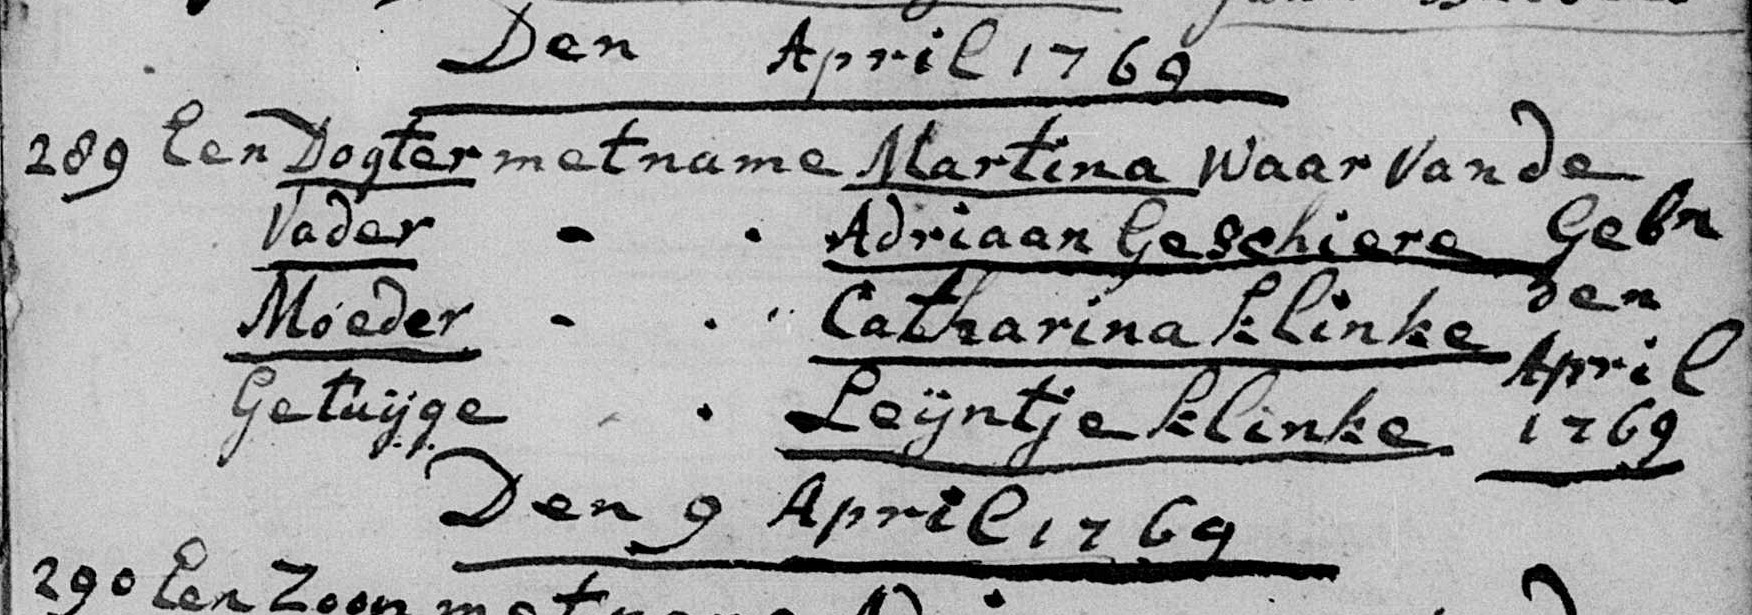 Den April 1769
289 Een Dogter met name Martina Waar van de
Vader - . Adriaan Geschiere Gebn
Moeder - . . Catharina Klinke den
April
Getuijge . Leijntje Klinke 1769
Den 9 April 1769
290 Een Zoon met name